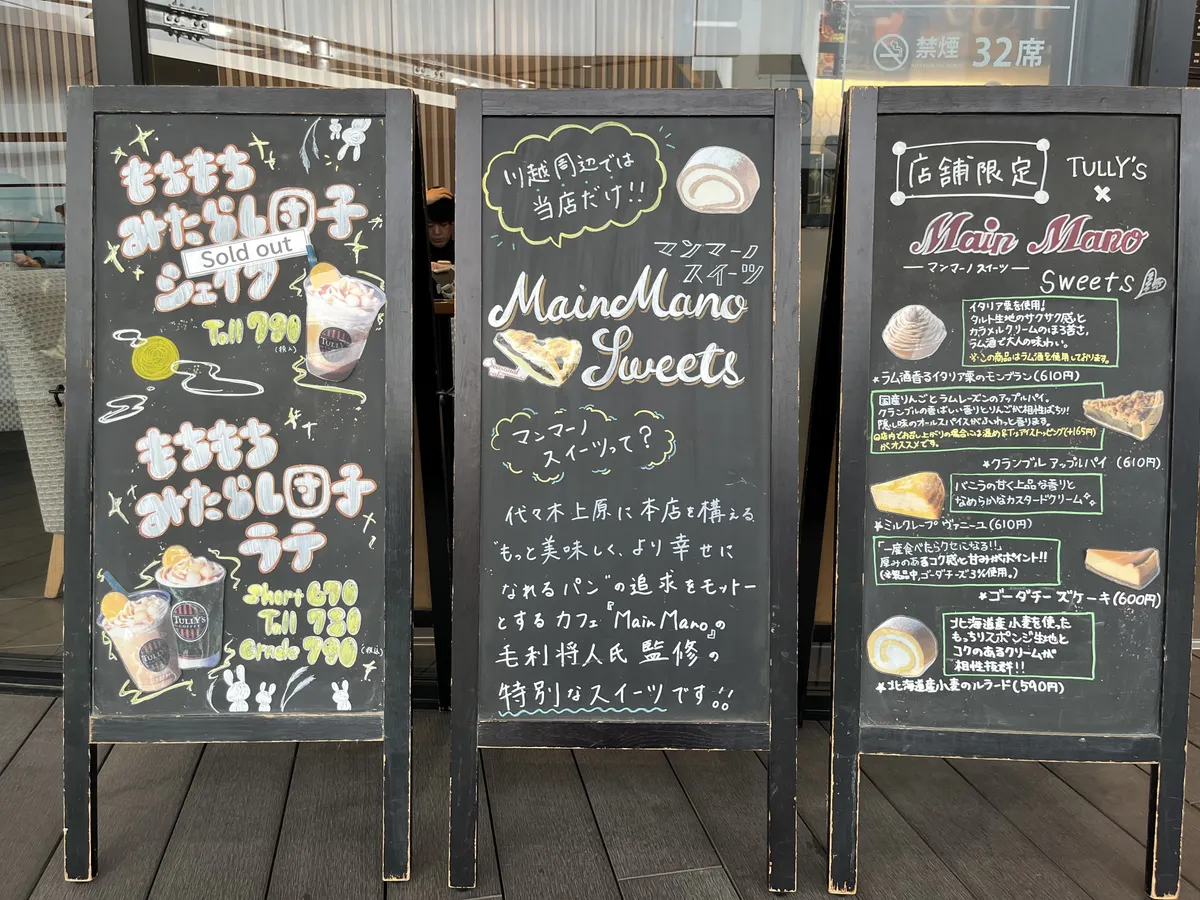 禁煙 32席
もちもち
みたらし団子
シェイク
Sold out
Tall 790
(税込)
TULLY'S
もちもち
みたらし団子
ラテ
Short 670
Tall 730
Grade 790
(税込)
TULLY'S
COFFEE
TULLY'S
川越周辺では
当店だけ!!
マンマーノ
スイーツ
MainMano
Sweets
マンマーノ
スイーツって?
代々木上原に本店を構える
"もっと美味しく、より幸せに
なれるパン"の追求をモットー
とするカフェ『Main Mano』の
毛利将人氏監修の
特別なスイーツです!!
店舗限定 TULLY'S
×
Main Mano
マンマーノ スイーツ
Sweets
イタリア栗を使用!
タルト生地のサクサク感と
カラメルクリームのほろ苦さ,
ラム酒で大人の味わい。
※この商品はラム酒を使用しております。
★ラム酒香るイタリア栗のモンブラン(610円)
国産りんごとラムレーズンのアップルパイ。
クランブルの香ばしい香りとりんごが相性ばっちり!
隠し味のオールスパイスがふわっと香ります。
店内でお召し上がりの場合には温め&アイストッピング(+165円)
がオススメです。
★クランブル アップルパイ (610円)
バニラの甘く上品な香りと
なめらかなカスタードクリーム
★ミルクレープ ヴァニーユ(610円)
「一度食べたらクセになる!!」
厚みのあるコク感と甘みがポイント!!
(※製品中,ゴーダチーズ3%使用。)
★ゴーダチーズケーキ(600円)
北海道産小麦を使った
もっちりスポンジ生地と
コクのあるクリームが
相性抜群!!
★北海道産小麦のルラード(590円)